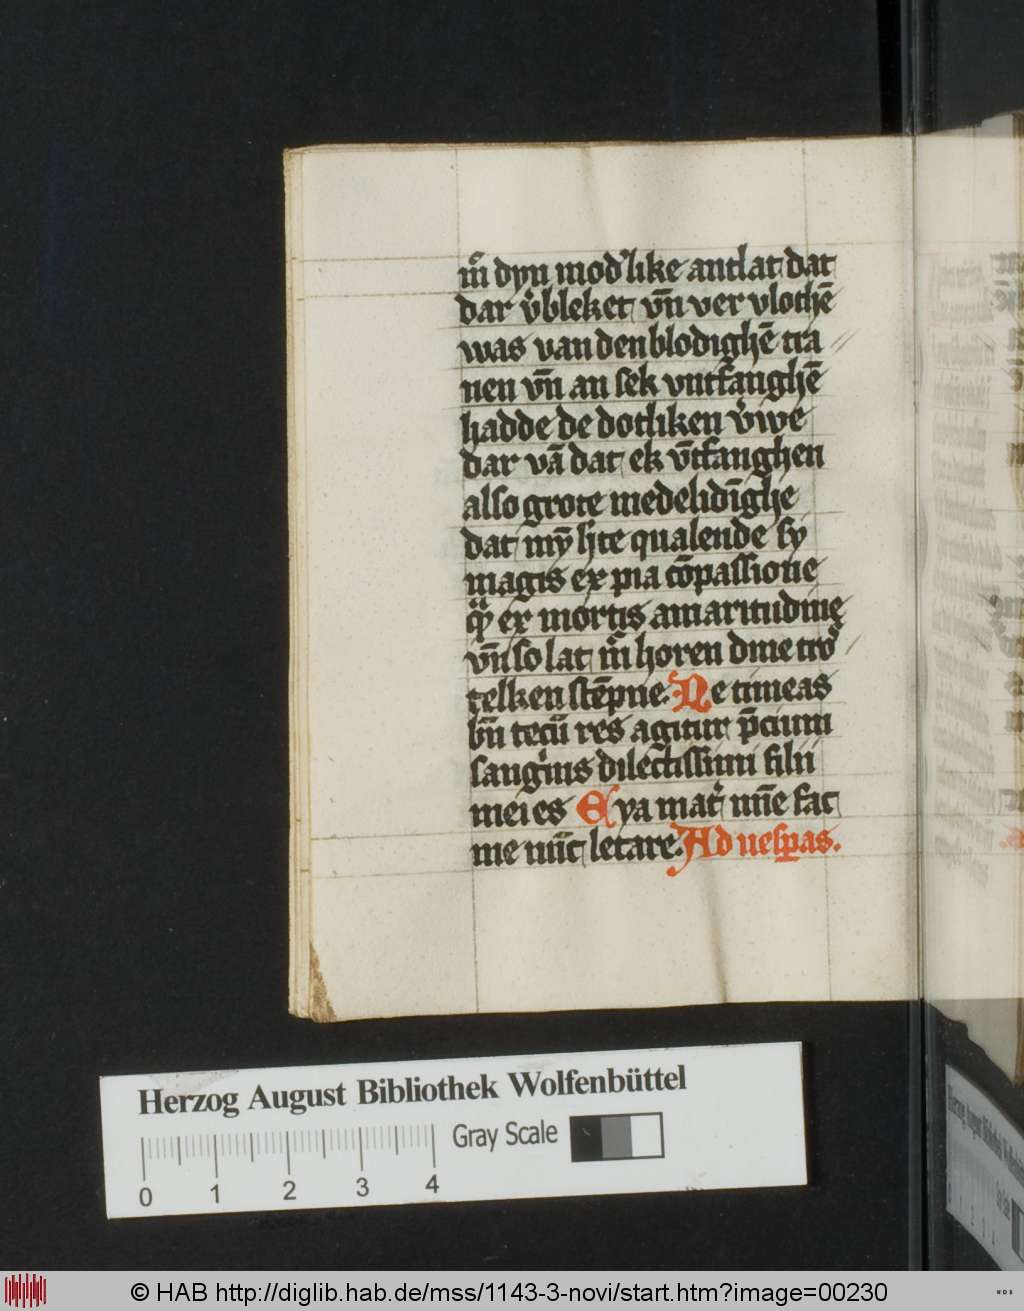 m̅ dyn mod'like antlat dat
dar v̓bleket vn̅ ver vlothe̅
was van den blodighe̅ tra
nen vn̅ an sek vntfanghe̅
hadde de dotliken v̓we
dar va̅ dat ek v̅tfanghen
also grote medelidi̅ghe
dat my̅ h̓te qualende sy
magis ex pia co̅passione
qͣꝫ ex mortis amaritudine
vn̅ so lat m̅ horen dine tro᷑
telken ste̅pne. Ne timeas
bn̅ tecu̅ res agitur p̅cium
sang̓inis dilectissimi filii
mei es Eya mat̓ mu̅e fac
me nu̅c letare. Ad uesꝑas.
Herzog August Bibliothek Wolfenbüttel
Gray Scale
0 1 2 3 4
© HAB http://diglib.hab.de/mss/1143-3-novi/start.htm?image=00230